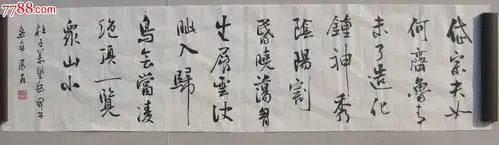 岱宗夫如
何齊魯青
未了造化
鍾神秀
陰陽割
昏曉蕩胷
生層雲決
眥入歸
鳥會當凌
絶頂一覽
衆山小
杜子美望岳